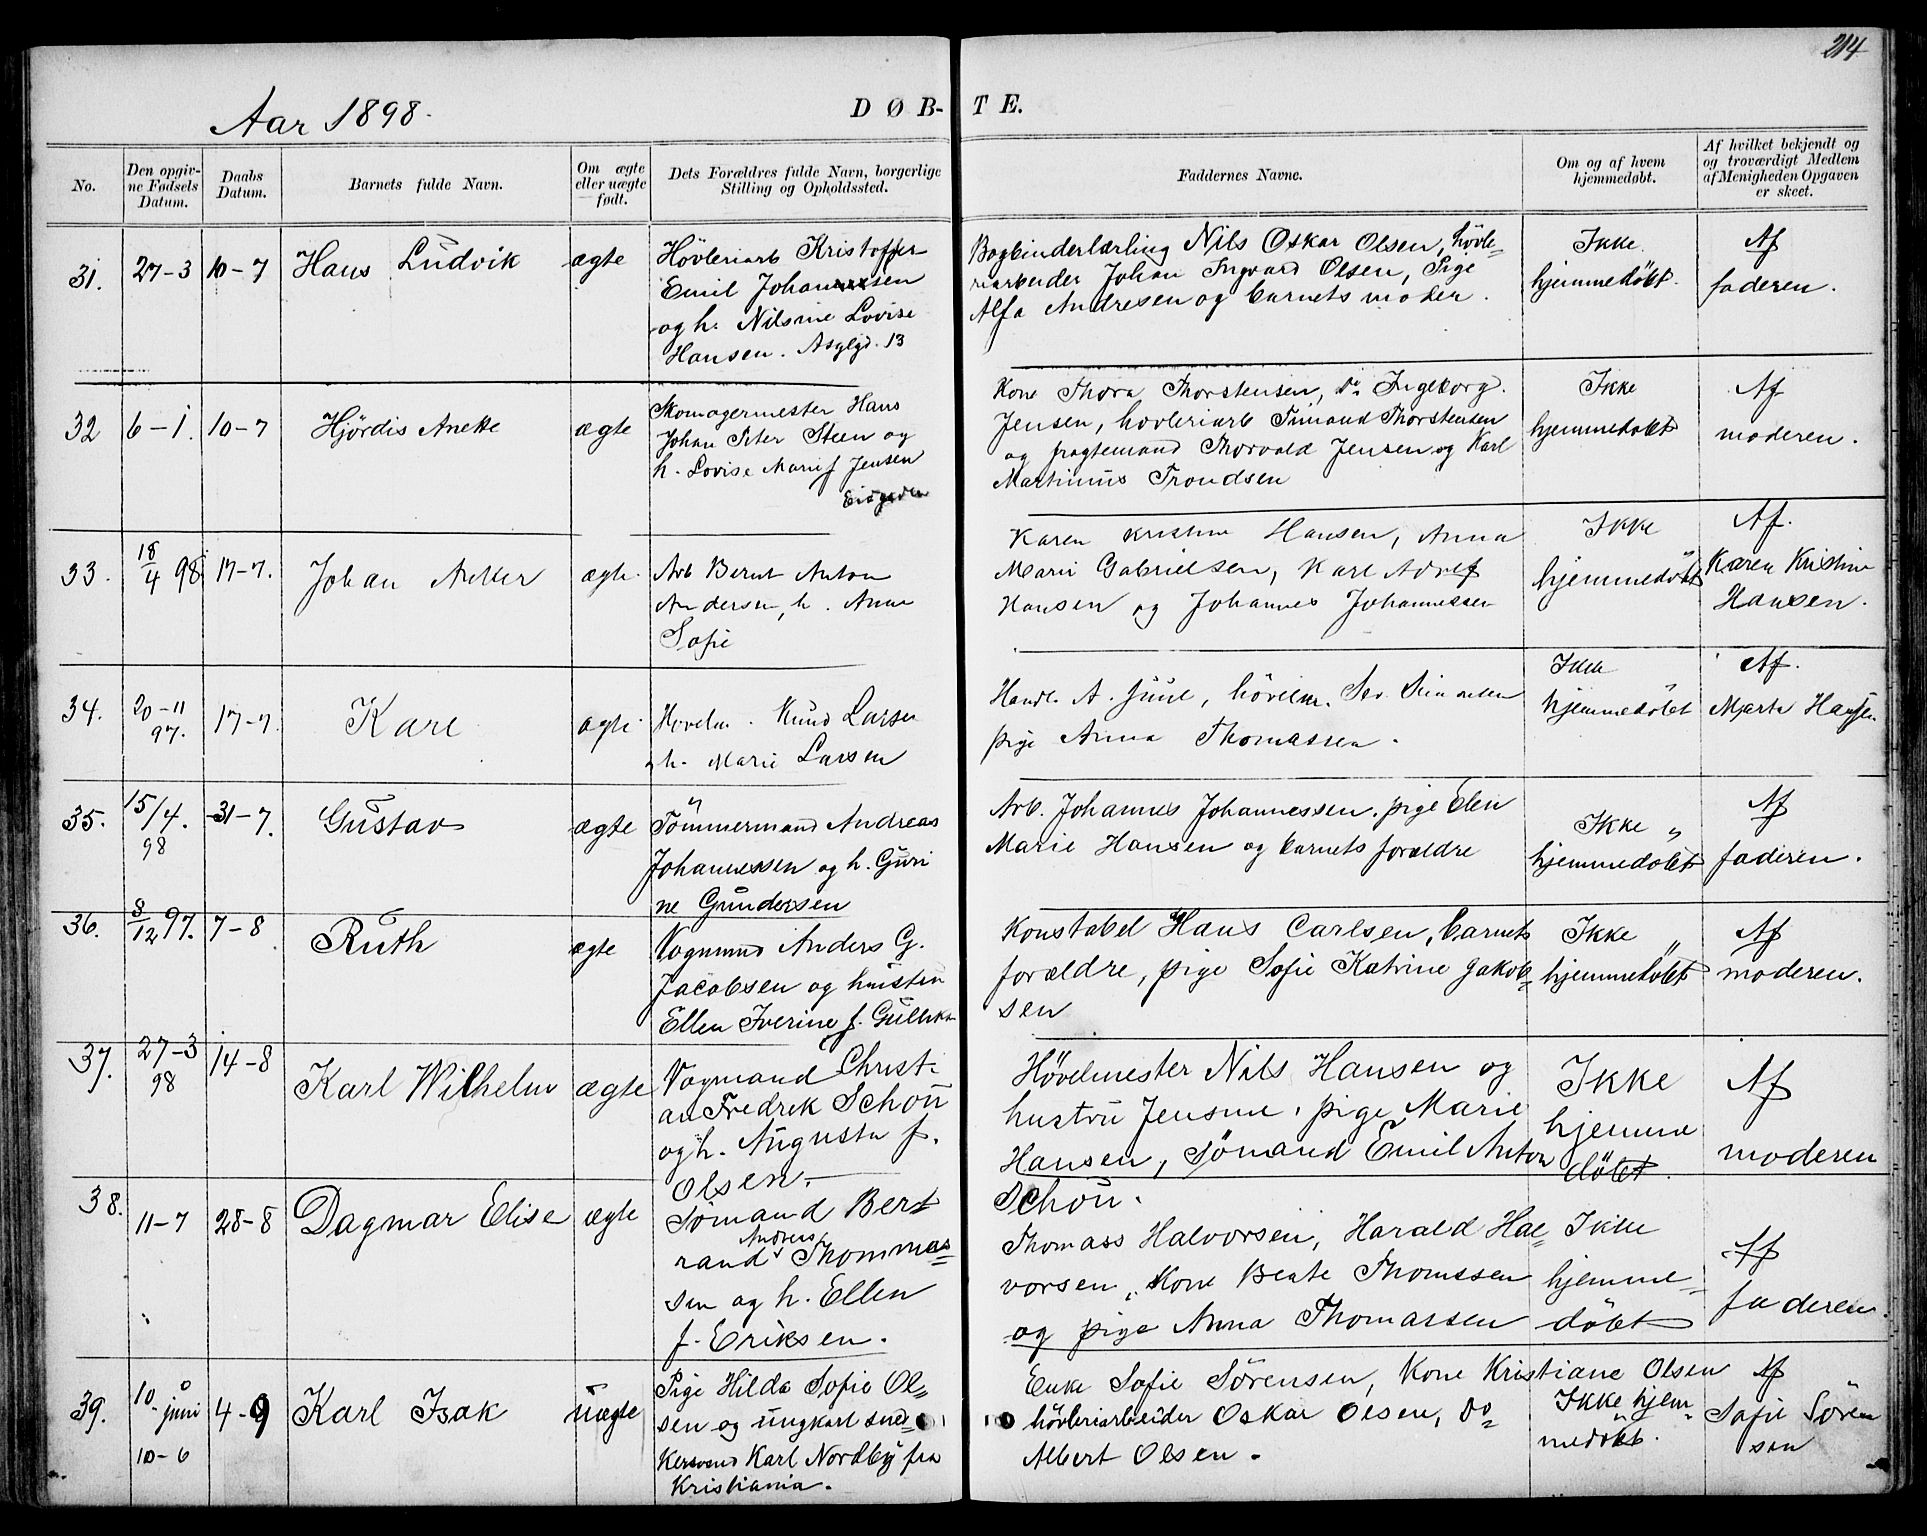 214
Aar 1898.
DØB-TE.
No.
Den opgivne Fødsels Datum.
Daabs Datum.
Barnets fulde Navn.
Om ægte eller uægte født.
Dets Forældres fulde Navn, borgerlige Stilling og Opholdssted.
Faddernes Navne.
Om og af hvem hjemmedøbt.
Af hvilket bekjendt og og troværdigt Medlem af Menigheden Opgaven er skeet.
31. 27-3 10-7 Hans Ludvik ægte
Hövleriarb Kristoffer
Emil Johannessen
og h. Nilsine Lovise
Hansen. Asylgd. 13
Bogbinderlærling Nils Oskar Olsen, hövle-
riarbeider Johan Ingvard Olsen, Pige
Alfa Andresen og barnets moder.
Ikke
hjemmedöbt.
Af
faderen.
32 6-1. 10-7 Hjördis Anette ægte
Skomagermester Hans
Johan Peter Steen og
h. Lovise Marie f Jensen
Kone Thora Thorstensen, Do Ingeborg
Jensen, hovleriarb Simand Thorstensen
og fragtemand Thorvald Jensen og Karl
Martinius Trondsen
Ikke
hjemmedobt
Af
moderen.
33. 18/4 98 17-7. Johan Anker ægte.
Arb Bernt Anton
Andersen, h. Anne
Sofie
Karen Kristine Hansen, Anna
Marie Gabrielsen, Karl Adolf
Hansen og Johannes Johannessen
Ikke
hjemmedöbt
Af.
Karen Kristine
Hansen.
34. 20-11 97. 17-7. Karl ægte
Hovelm. Knud Larsen
h. Marie Larsen
Handl. A. Juul, hövelm. Sev. Simonsen
pige Anna Thomassen.
Ikke
hjemmedöbt
Af.
Marta Hansen
35. 15/4. 98 31-7. Gustav ægte
Tömmermand Andreas
Johannessen og h. Guri
ne Gundersen
Arb. Johannes Johannessen. pige Elen
Marie Hansen og barnets forældre
Ikke
hjemmedöbt
Af
faderen.
36. 8/12 97. 7-8 Ruth ægte
Vogmand Anders G.
Jacobsen og hustru
Ellen Iverine f. Gulliksen
Konstabel Hans Carlsen, barnets
forældre, pige Sofie Katrine Jakob=
sen
Ikke
hjemmedöbt
Af
moderen.
37. 27-3 98 14-8 Karl Wilhelm ægte
Vogmand Christi
an Fredrek Schou
og h. Augusta f.
Olsen.
Hövelmester Nils Hansen og
hustru Jensine, pige Marie
Hansen, Sömand Emil Anton
Schou.
Ikke
hjemme
döbt.
Af
moderen
38. 11-7 28-8 Dagmar Elise ægte
Sömand Bert
rand Andreas Thommas=
sen og h. Ellen
f. Eriksen.
Thomass Halvorsen, Harald Hal=
vorsen, Kone Beate Thomssen
og pige Anna Thomassen
Ikke
hjemme=
döbt
Af
faderen.
39. 10 juni 10-6 4-9 Karl Isak uægte
Pige Hilda Sofie Ol=
sen og ungkarl sned=
kersvend Karl Nordby fra
Kristiania.
Enke Sofie Sörensen, Kone Kristiane Olsen
hövleriarbeider Oskar Olsen, Do
Albert Olsen.
Ikke hjem=
medöbt.
Af
Sofie Sören
sen